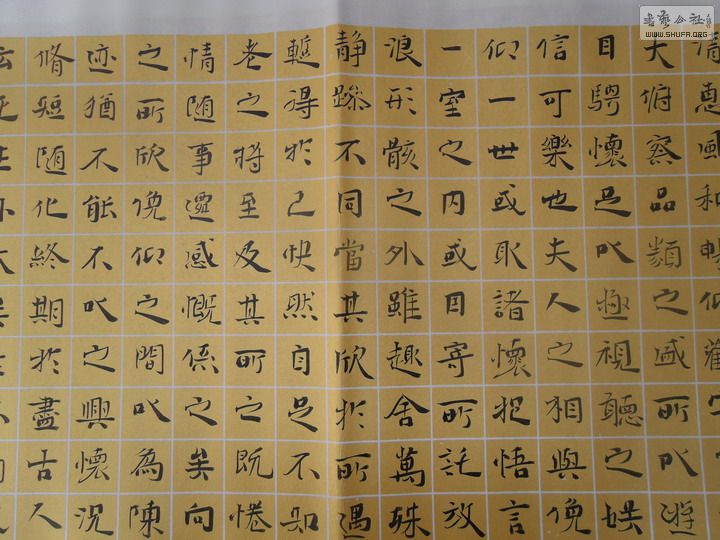 清惠風和暢仰觀宇
大俯察品類之盛所以遊
目騁懷足以極視聽之娛
信可樂也夫人之相與俛
仰一世或取諸懷抱悟言
一室之内或因寄所託放
浪形骸之外雖趣舍萬殊
静躁不同當其欣於所遇
蹔得於己快然自足不知
老之將至及其所之既惓
情随事遷感慨係之矣向
之所欣俛仰之間以為陳
迹猶不能不以之興懷況
脩短随化終期於盡古人
云死生
書藝公社
WWW.SHUFA.ORG